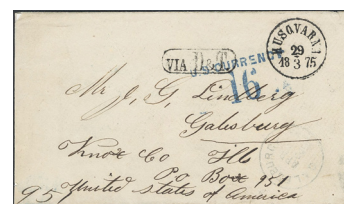 HUSQVARNA
29
18 3 75
VIA
U.S. CURRENCY
16
Mr J, G, Lindberg
Galesburg
Knox Co Ills
P.o Box 951
95 United states of America